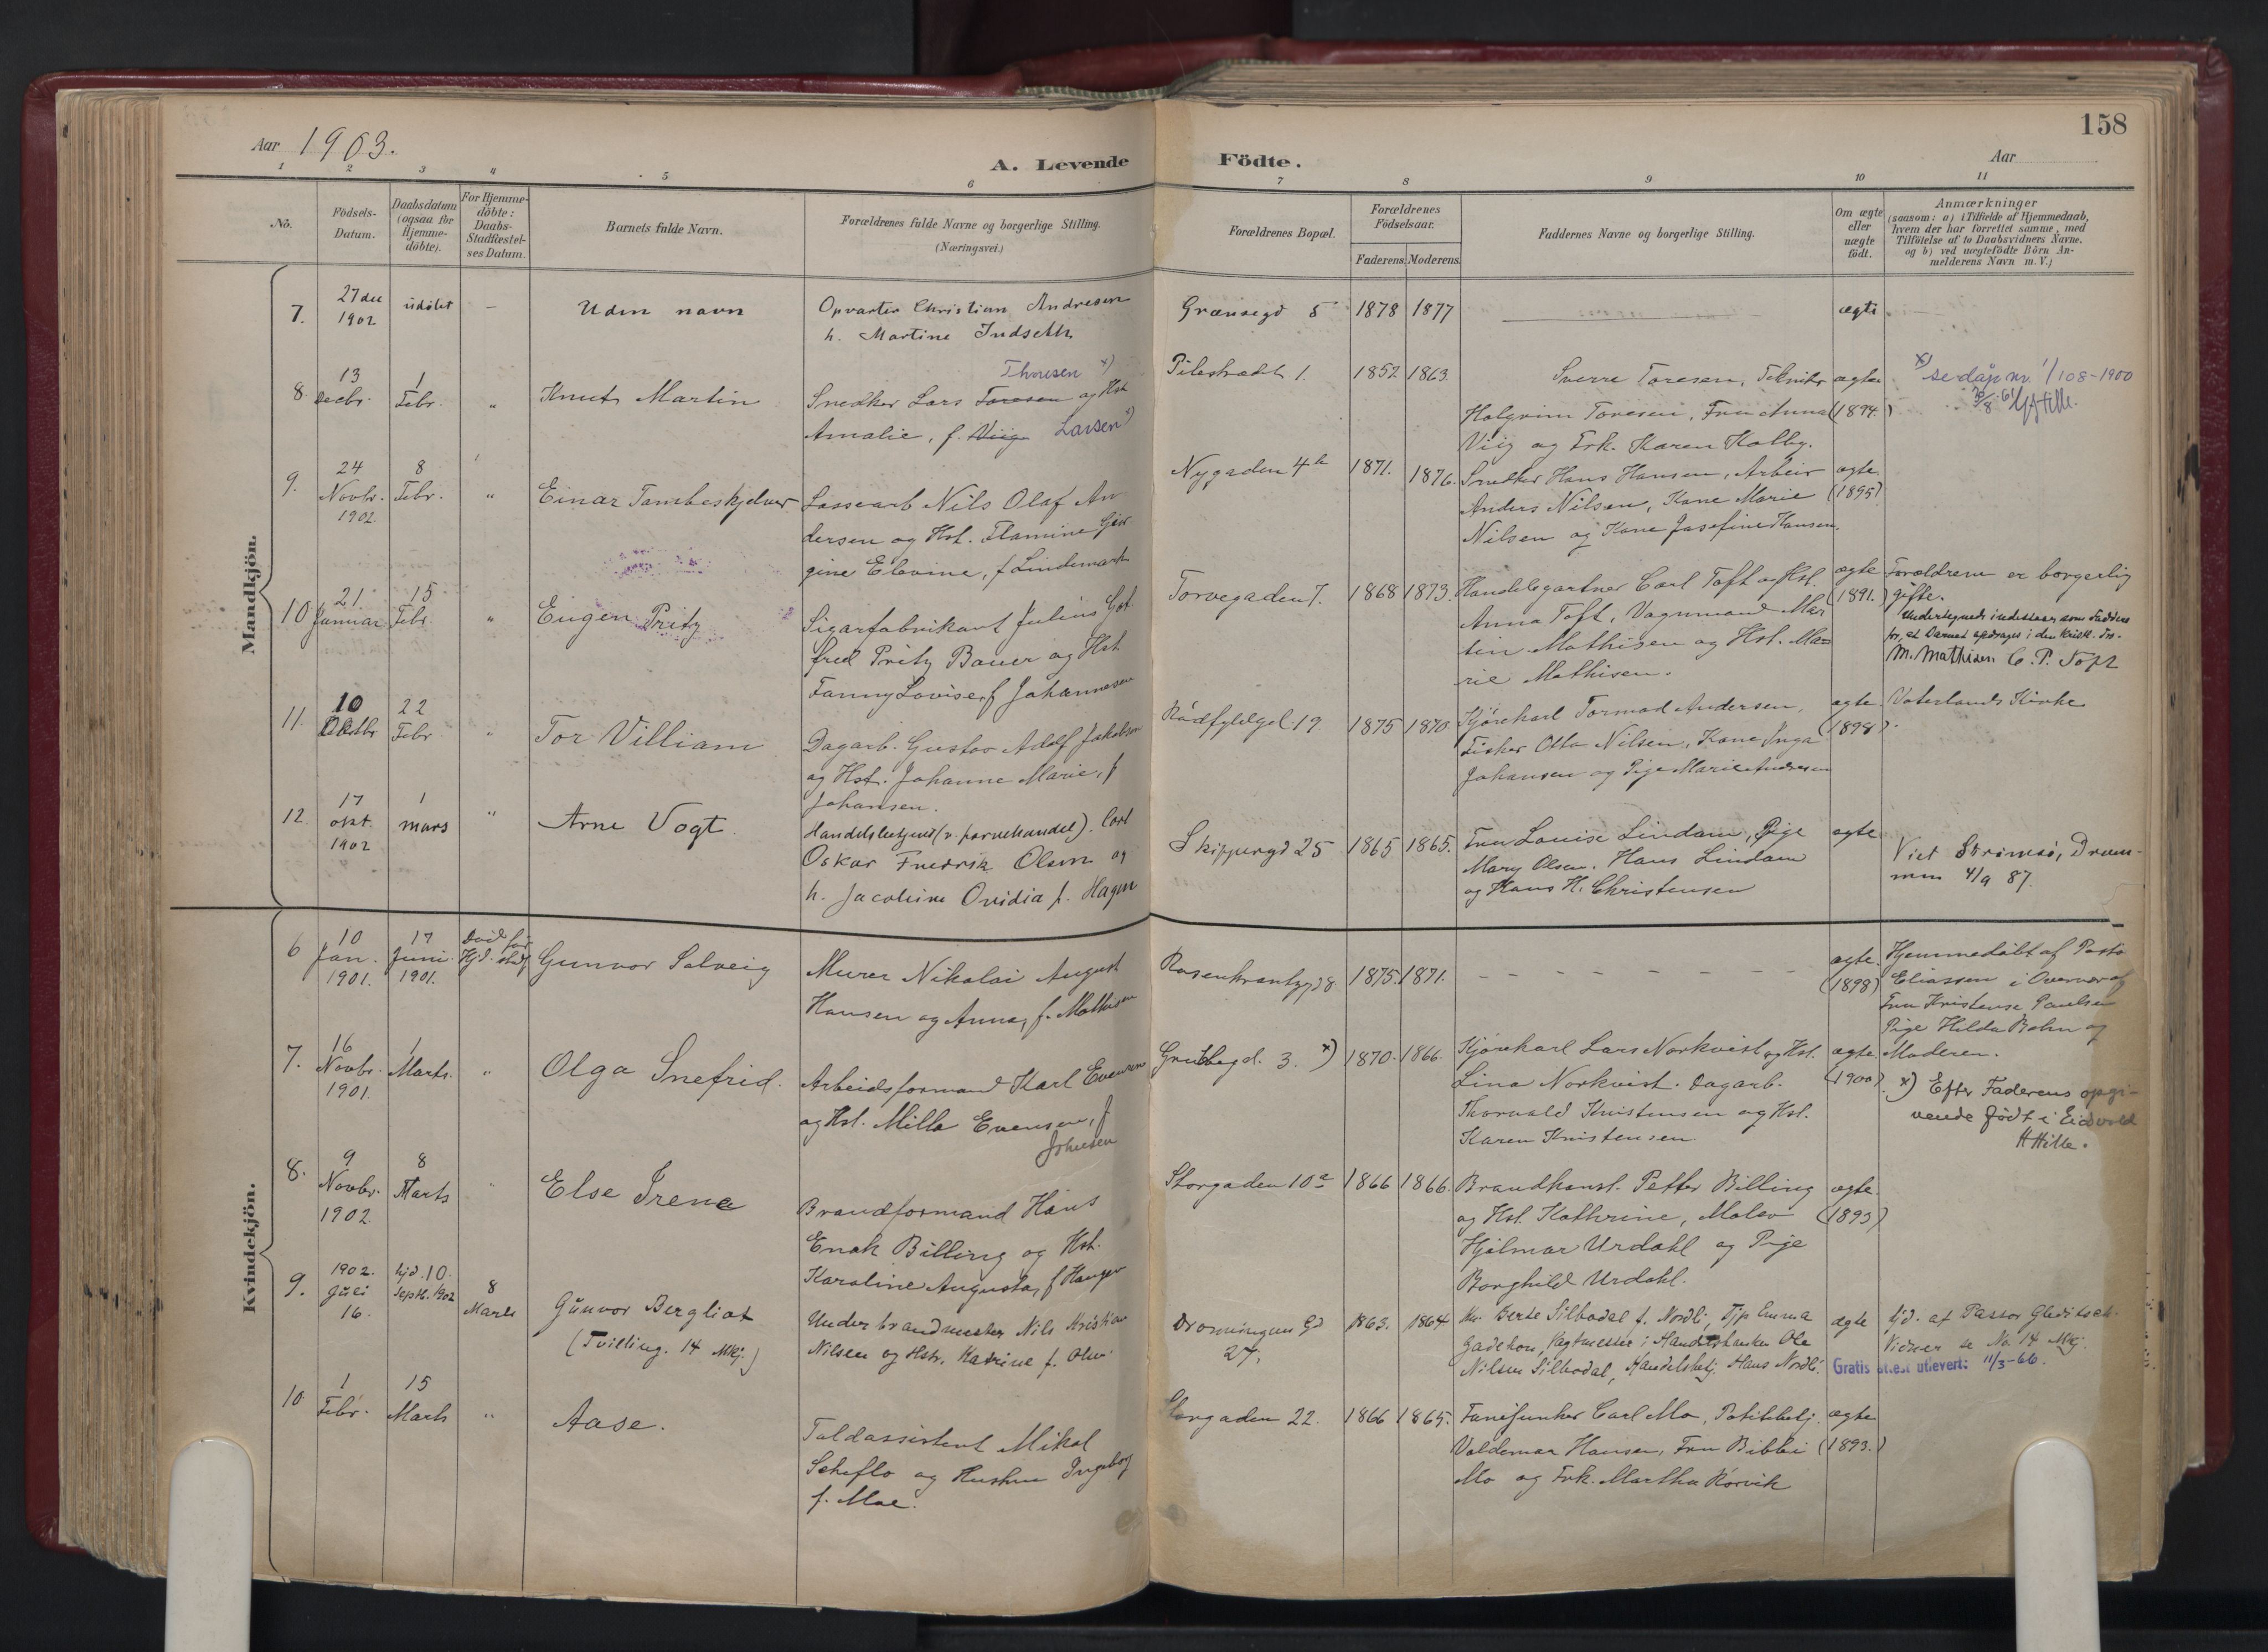 158
Aar 1903.
A. Levende Födte.
Aar
1 2 3 4 5 6 7 8 9 10 11
No.
Födsels-
Datum.
Daabsdatum
(ogsaa for
Hjemme-
döbte).
For Hjemme-
döbte:
Daabs-
Stadfæstel-
ses Datum.
Barnets fulde Navn.
Forældrenes fulde Navne og borgerlige Stilling.
(Næringsvei.)
Forældrenes Bopæl.
Forældrenes
Födselsaar.
Faderens. Moderens.
Faddernes Navne og borgerlige Stilling.
Om ægte
eller
uægte
födt.
Anmærkninger
(saasom: a) i Tilfælde af Hjemmedaab,
hvem der har forrettet samme, med
Tilföielse af to Daabsvidners Navne.
og b) ved uægtefödte Börn An-
melderens Navn m. V.)
Mandkjön.
7.
27 dec
1902
udöbt
—
Uden navn
Opvarter Christian Andresen
h. Martine Indseth
Grænsegd 5
1878 1877
ægte
8.
13
Decbr.
1
Febr.
"
Knut Martin
Thoresen x)
Snedker Lars Toresen og Hst
Amalie, f. Viig Larsen x)
Pilestrædet 1.
1852 1863.
Sverre Toresen, Tekniker
Halgrim Toresen, Fru Anna
Viig og Frk. Karen Kolby.
ægte
(1894.)
x) se dåp nr. 1/108-1900
9.
24
Novbr.
1902.
8
Febr.
"
Einar Tambeskjelver
Lossearb Nils Olaf An
dersen og Hst. Flamine Geor
gine Elevine, f Lindemark
Nygaden 4b
1871. 1876.
Snedker Hans Hansen, Arbeir
Anders Nilsen, Kone Marie
Nilsen og Kone Josefine Hansen.
ægte.
(1895)
10.
21.
Januar
15
Febr.
"
Eugen Pritz
Sigarfabrikant Julius Got
fred Pritz Bauer og Hst
Fanny Lovise f Johannesen
Torvegaden 7.
1868 1873.
Handelsgartner Carl Toft og Hst.
Anna Toft, Vognmand Mar
tin Mathisen og Hst. Ma=
rie Mathisen.
ægte
(1891.)
Forældrene er borgerlig
gifte.
Undertegnede indestaar som Faddere
for, at Barnet opdrages i den kristl. Tro.
M. Mathisen C. P. Toft
11.
10
Oktbr
22
Febr
"
Tor Villiam
Dagarb. Gustav Adolf Jakobsen
og Hst. Johanne Marie, f
Johansen.
1875 1870
Kjørekarl Tormod Andersen,
Fisker Otto Nilsen, Kone Inga
Johansen og Pige Marie Andresen
ægte
(1898)
Vaterlands Kirke
12
17
okt.
1902
1
mars
"
Arne Vogt.
Handelsbetjent (v. farvehandel). Carl
Oskar Fredrik Olsen og
h. Jacobine Ovidia f. Hagen
Skippergd 25
1865 1865.
Fru Louise Lindam, Pige
Mary Olsen. Hans Lindam
og Hans H. Christensen
ægte
Viet Strømsö, Dram-
men 4/9 87.
Kvindekjön.
6
10
Jan.
1901.
17
Juni
1901.
Död før
Hjd. stdf
Gunvor Solveig
Murer Nikolai August
Hansen og Anna, f. Mathisen
Rosenkrantzgd 8
1875. 1871.
– – – – – – –
ægte.
(1898)
Hjemmedöbt af Pastor
Eliassen i Overvær af
Fru Kristense Paulsen
Pige Hilda Bohn og
Moderen.
7.
16
Novbr.
1901.
1
Marts.
"
Olga Snefrid.
Arbeidsformand Karl Evensen
og Hst. Milla Evensen, f
Johnsen
Grubbegd. 3. x)
1870. 1866.
Kjørekarl Lars Norkvist og Hst.
Lina Norkvist. Dagarb.
Thorvald Kristensen og Hst.
Karen Kristensen.
ægte
(1900)
x) Efter Faderens opgi-
vende født i Eidsvold
H Hille.
8.
9
Novbr.
1902.
8
Marts
"
Else Irene
Brandformand Hans
Enok Billing og Hst.
Karoline Augusta, f Hauger
Storgaden 10a
1866 1866.
Brandkonst. Petter Billing
og Hst. Kathrine, Maler
Hjalmar Urdahl og Pige
Borghild Urdahl.
ægte
(1893)
9.
1902.
Juli
16.
hjd. 10.
Septbr. 1902
8
Marts
Gunvor Bergliot
(Tvilling. 14 Mkj.)
Underbrandmester Nils Kristian
Nilsen og Hstr. Katrine f. Olsen
Dronningens Gd
27.
1863. 1864
Fru Berte Silbodal f. Nordli, Tjp Emma
Gadeholm, Vagtmester i Handelsbanken Ole
Nilsen Silbodal, Handelsbetj. Hans Nordli.
ægte
hjd. af Pastor Gleditsch.
Vidner se No. 14 Mkj.
Gratis attest utlevert: 11/3-66.
10
1
Febr.
15
Marts
"
Aase.
Toldassistent Mikal
Scheflo og Hustru Ingeborg
f. Moe.
Storgaden 22.
1866 1865.
Fanejunker Carl Mo, Politibetj.
Valdemar Hansen, Fru Bibbi
Mo og Frk. Martha Rørvik
ægte
(1893.)